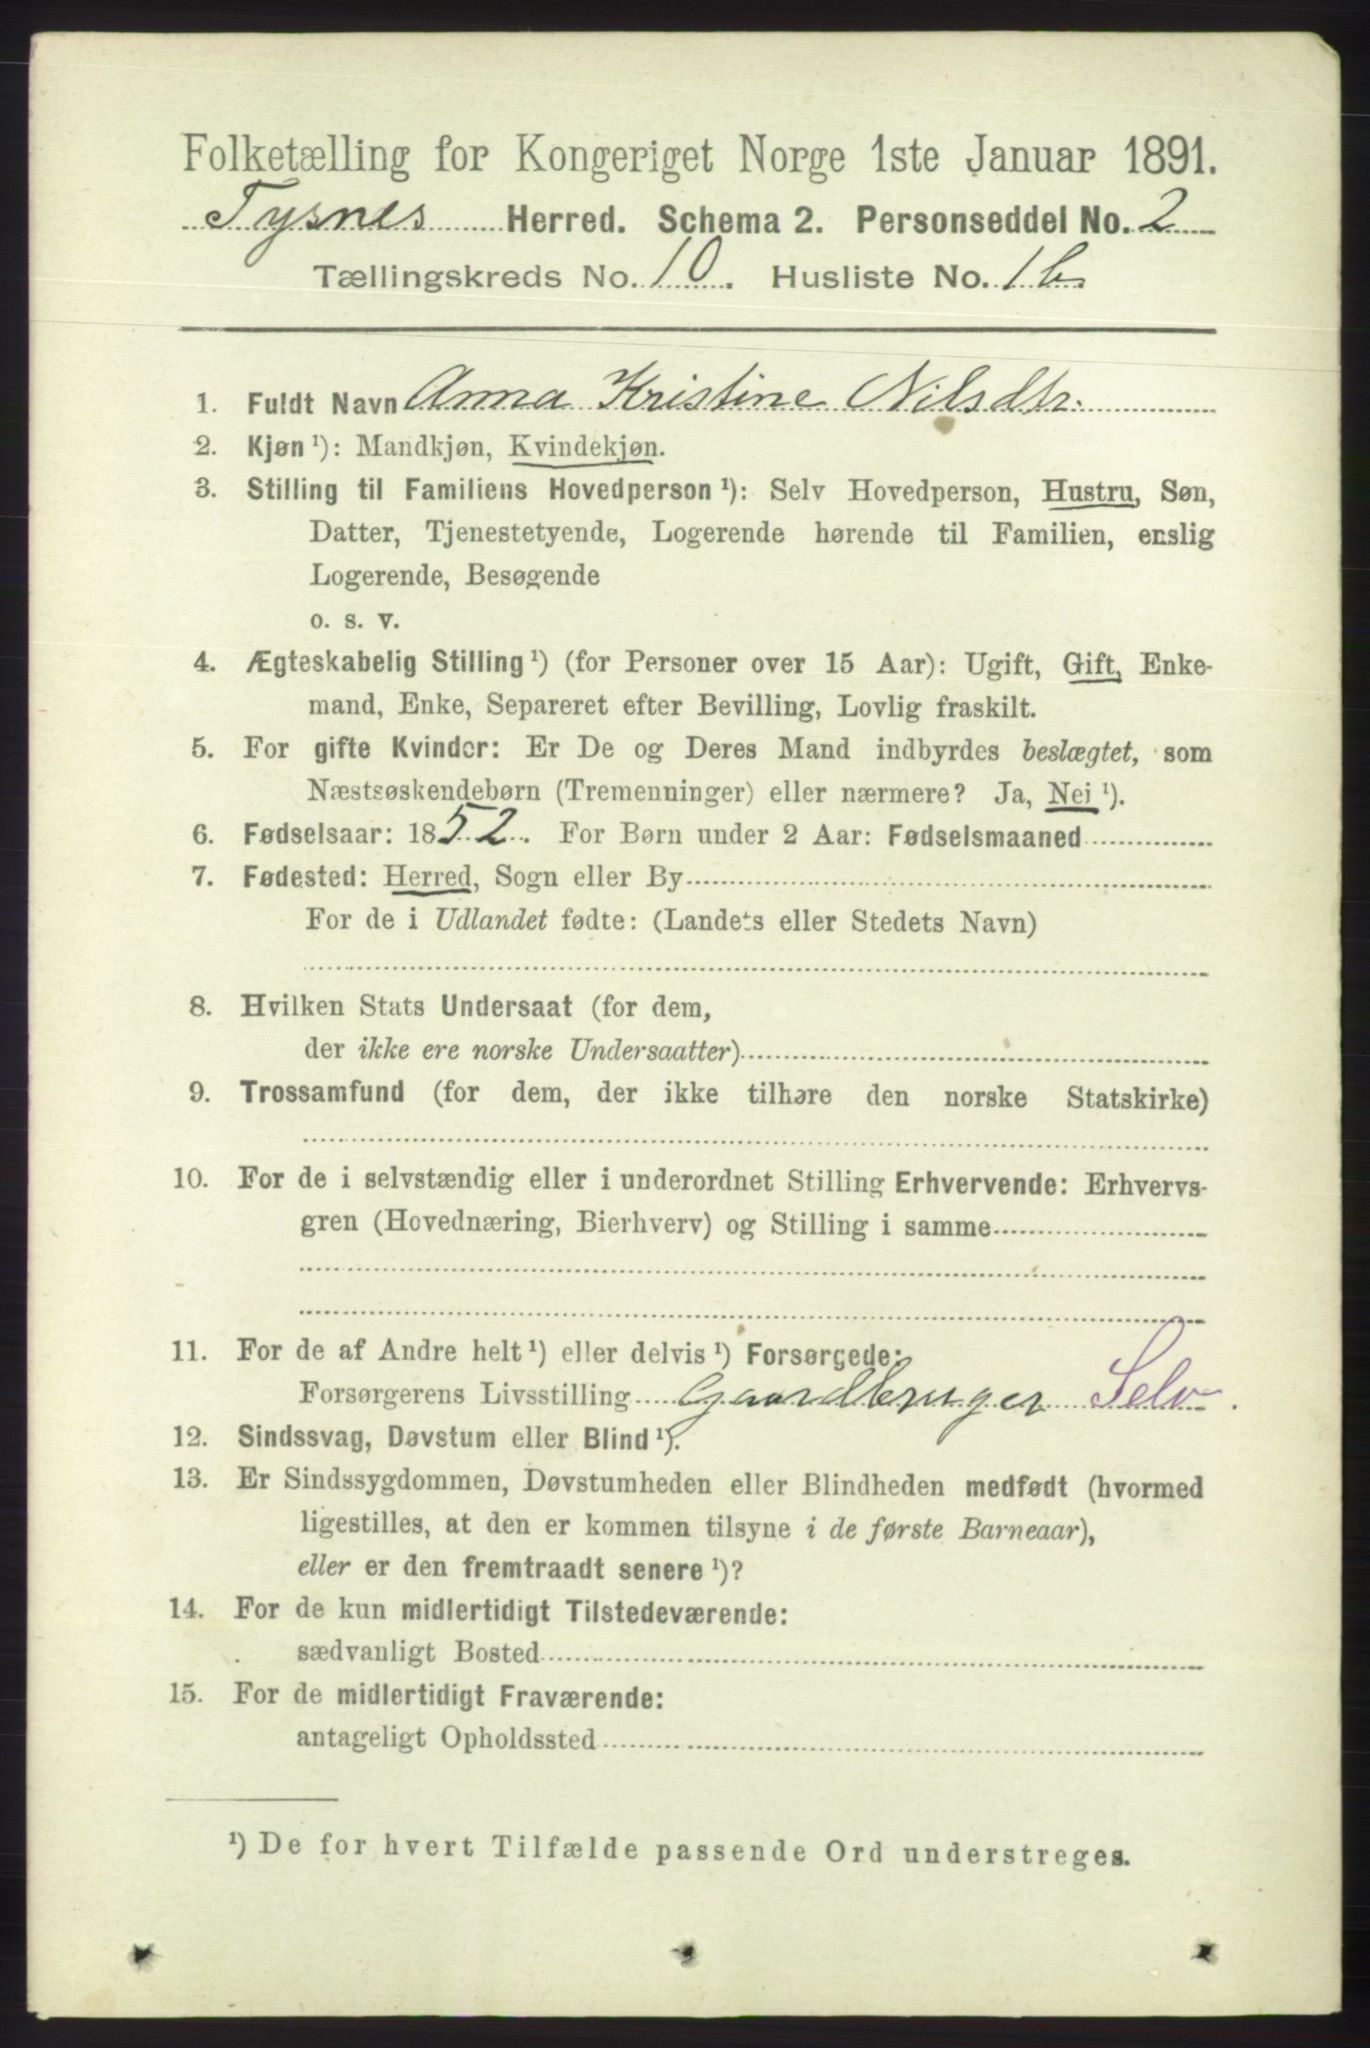 Folketælling for Kongeriget Norge 1ste Januar 1891.
Tysnes Herred. Schema 2. Personseddel No. 2
Tællingskreds No. 10. Husliste No. 1b.
1. Fuldt Navn Anna Kristine Nilsdtr.
2. Kjøn ¹): Mandkjøn, Kvindekjøn.
3. Stilling til Familiens Hovedperson ¹): Selv Hovedperson, Hustru, Søn,
Datter, Tjenestetyende, Logerende hørende til Familien, enslig
Logerende, Besøgende
o. s. v.
4. Ægteskabelig Stilling ¹) (for Personer over 15 Aar): Ugift, Gift, Enke-
mand, Enke, Separeret efter Bevilling, Lovlig fraskilt.
5. For gifte Kvinder: Er De og Deres Mand indbyrdes beslægtet, som
Næstsøskendebørn (Tremenninger) eller nærmere? Ja, Nei ¹).
6. Fødselsaar: 1852. For Børn under 2 Aar: Fødselsmaaned
7. Fødested: Herred, Sogn eller By
For de i Udlandet fødte: (Landets eller Stedets Navn)
8. Hvilken Stats Undersaat (for dem,
der ikke ere norske Undersaatter)
9. Trossamfund (for dem, der ikke tilhøre den norske Statskirke)
10. For de i selvstændig eller i underordnet Stilling Erhvervende: Erhvervs-
gren (Hovednæring, Bierhverv) og Stilling i samme
11. For de af Andre helt ¹) eller delvis ¹) Forsørgede:
Forsørgerens Livsstilling Gaardbruger Selv.
12. Sindssvag, Døvstum eller Blind ¹).
13. Er Sindssygdommen, Døvstumheden eller Blindheden medfødt (hvormed
ligestilles, at den er kommen tilsyne i de første Barneaar),
eller er den fremtraadt senere ¹)?
14. For de kun midlertidigt Tilstedeværende:
sædvanligt Bosted
15. For de midlertidigt Fraværende:
antageligt Opholdssted
¹) De for hvert Tilfælde passende Ord understreges.